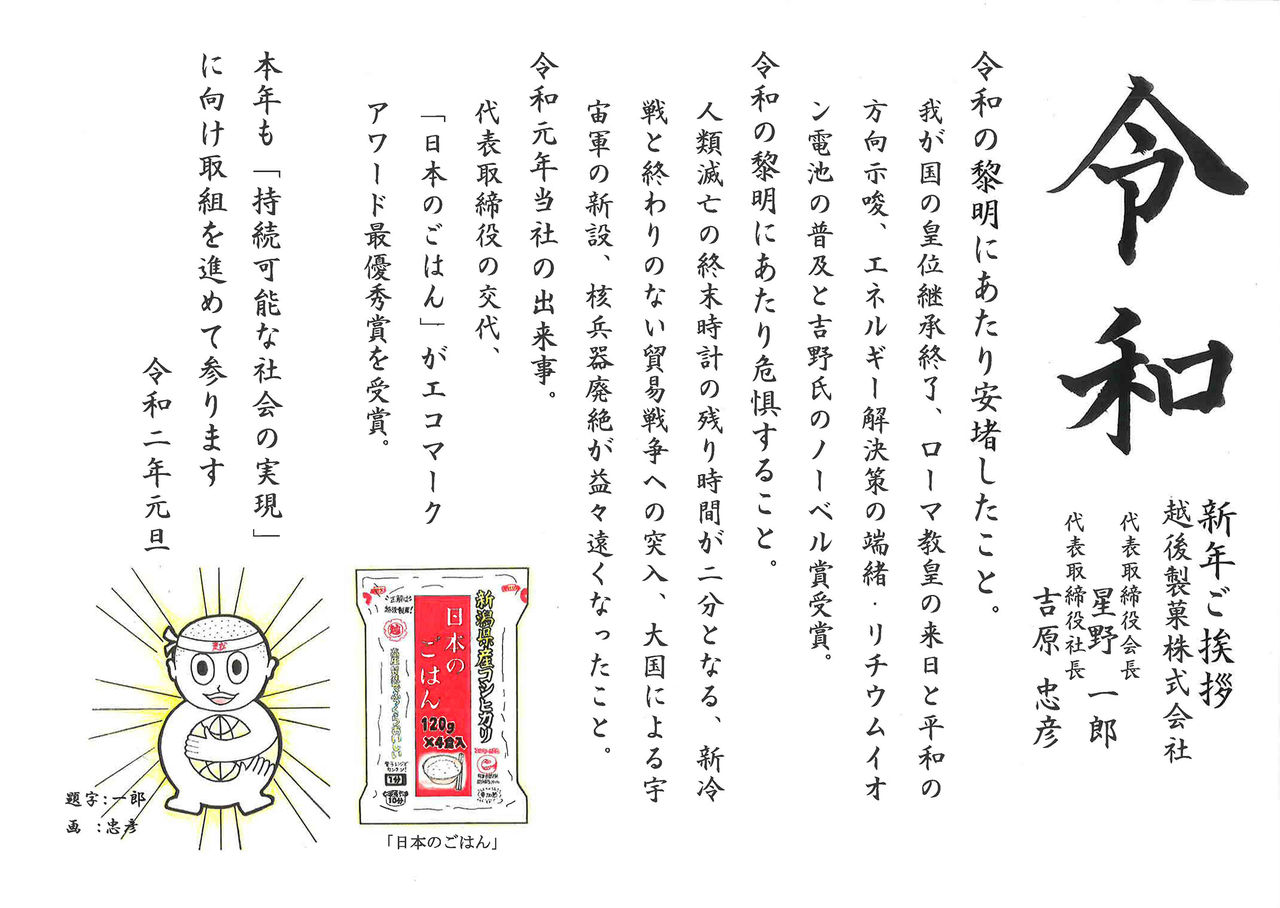 令和
新年ご挨拶
越後製菓株式会社
代表取締役会長
星野 一郎
代表取締役社長
吉原 忠彦
令和の黎明にあたり安堵したこと。
我が国の皇位継承終了、ローマ教皇の来日と平和の
方向示唆、エネルギー解決策の端緒・リチウムイオ
ン電池の普及と吉野氏のノーベル賞受賞。
令和の黎明にあたり危惧すること。
人類滅亡の終末時計の残り時間が二分となる、新冷
戦と終わりのない貿易戦争への突入、大国による宇
宙軍の新設、核兵器廃絶が益々遠くなったこと。
令和元年当社の出来事。
代表取締役の交代、
「日本のごはん」がエコマーク
アワード最優秀賞を受賞。
本年も「持続可能な社会の実現」
に向け取組を進めて参ります
令和二年元旦
正解は
越後製菓!
新潟県産コシヒカリ
日本の
ごはん
120g
×4食入
電子レンジで
カンタン!
1分
10分
「日本のごはん」
題字:一郎
画 :忠彦